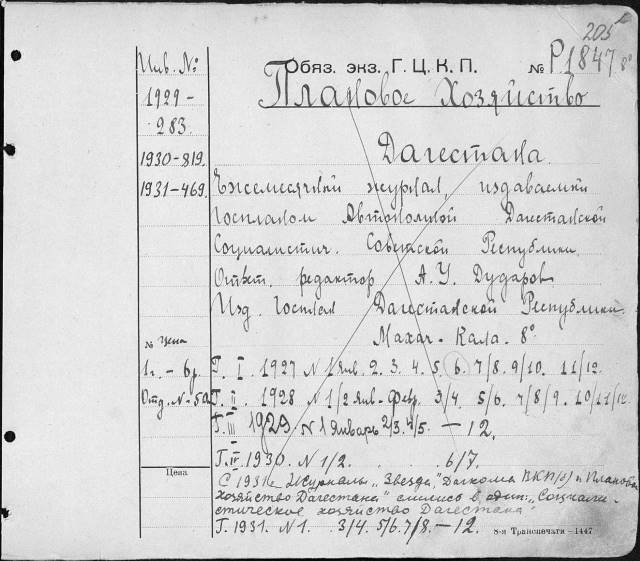 205
Обяз. экз. Г. Ц. К. П. № Р1847 8°
Плановое Хозяйство
Дагестана.
Ежемесячный журнал, издаваемый
Госпланом Автономной Дагестанской
Социалистич. Советской Республики.
Ответ. редактор А. У. Дударов
Изд. Госплан Дагестанской Республики.
Махач-Кала. 8°
Инв. №
1929-
283.
1930-819.
1931-469.
№ Цена
1г. - 6р.
Отд. №-50
Г. I. 1927 N 1 янв. 2. 3. 4. 5. 6. 7/8. 9/10. 11/12.
Г. II. 1928 N 1/2 янв-Февр. 3/4. 5/6. 7/8/9. 10/11/12.
Г. III 1929 N 1 январь 2/3. 4/5. - 12.
Г. IV 1930. N 1/2. 6/7.
Цена
С 1931г. Журналы "Звезда" Дагкома ВКП(б) и Планово
хозяйство Дагестана" слились в один: "Социали-
стическое хозяйство Дагестана"
Г. 1931. N 1. 3/4. 5/6. 7/8. - 12.
8-я Транспечати - 1447